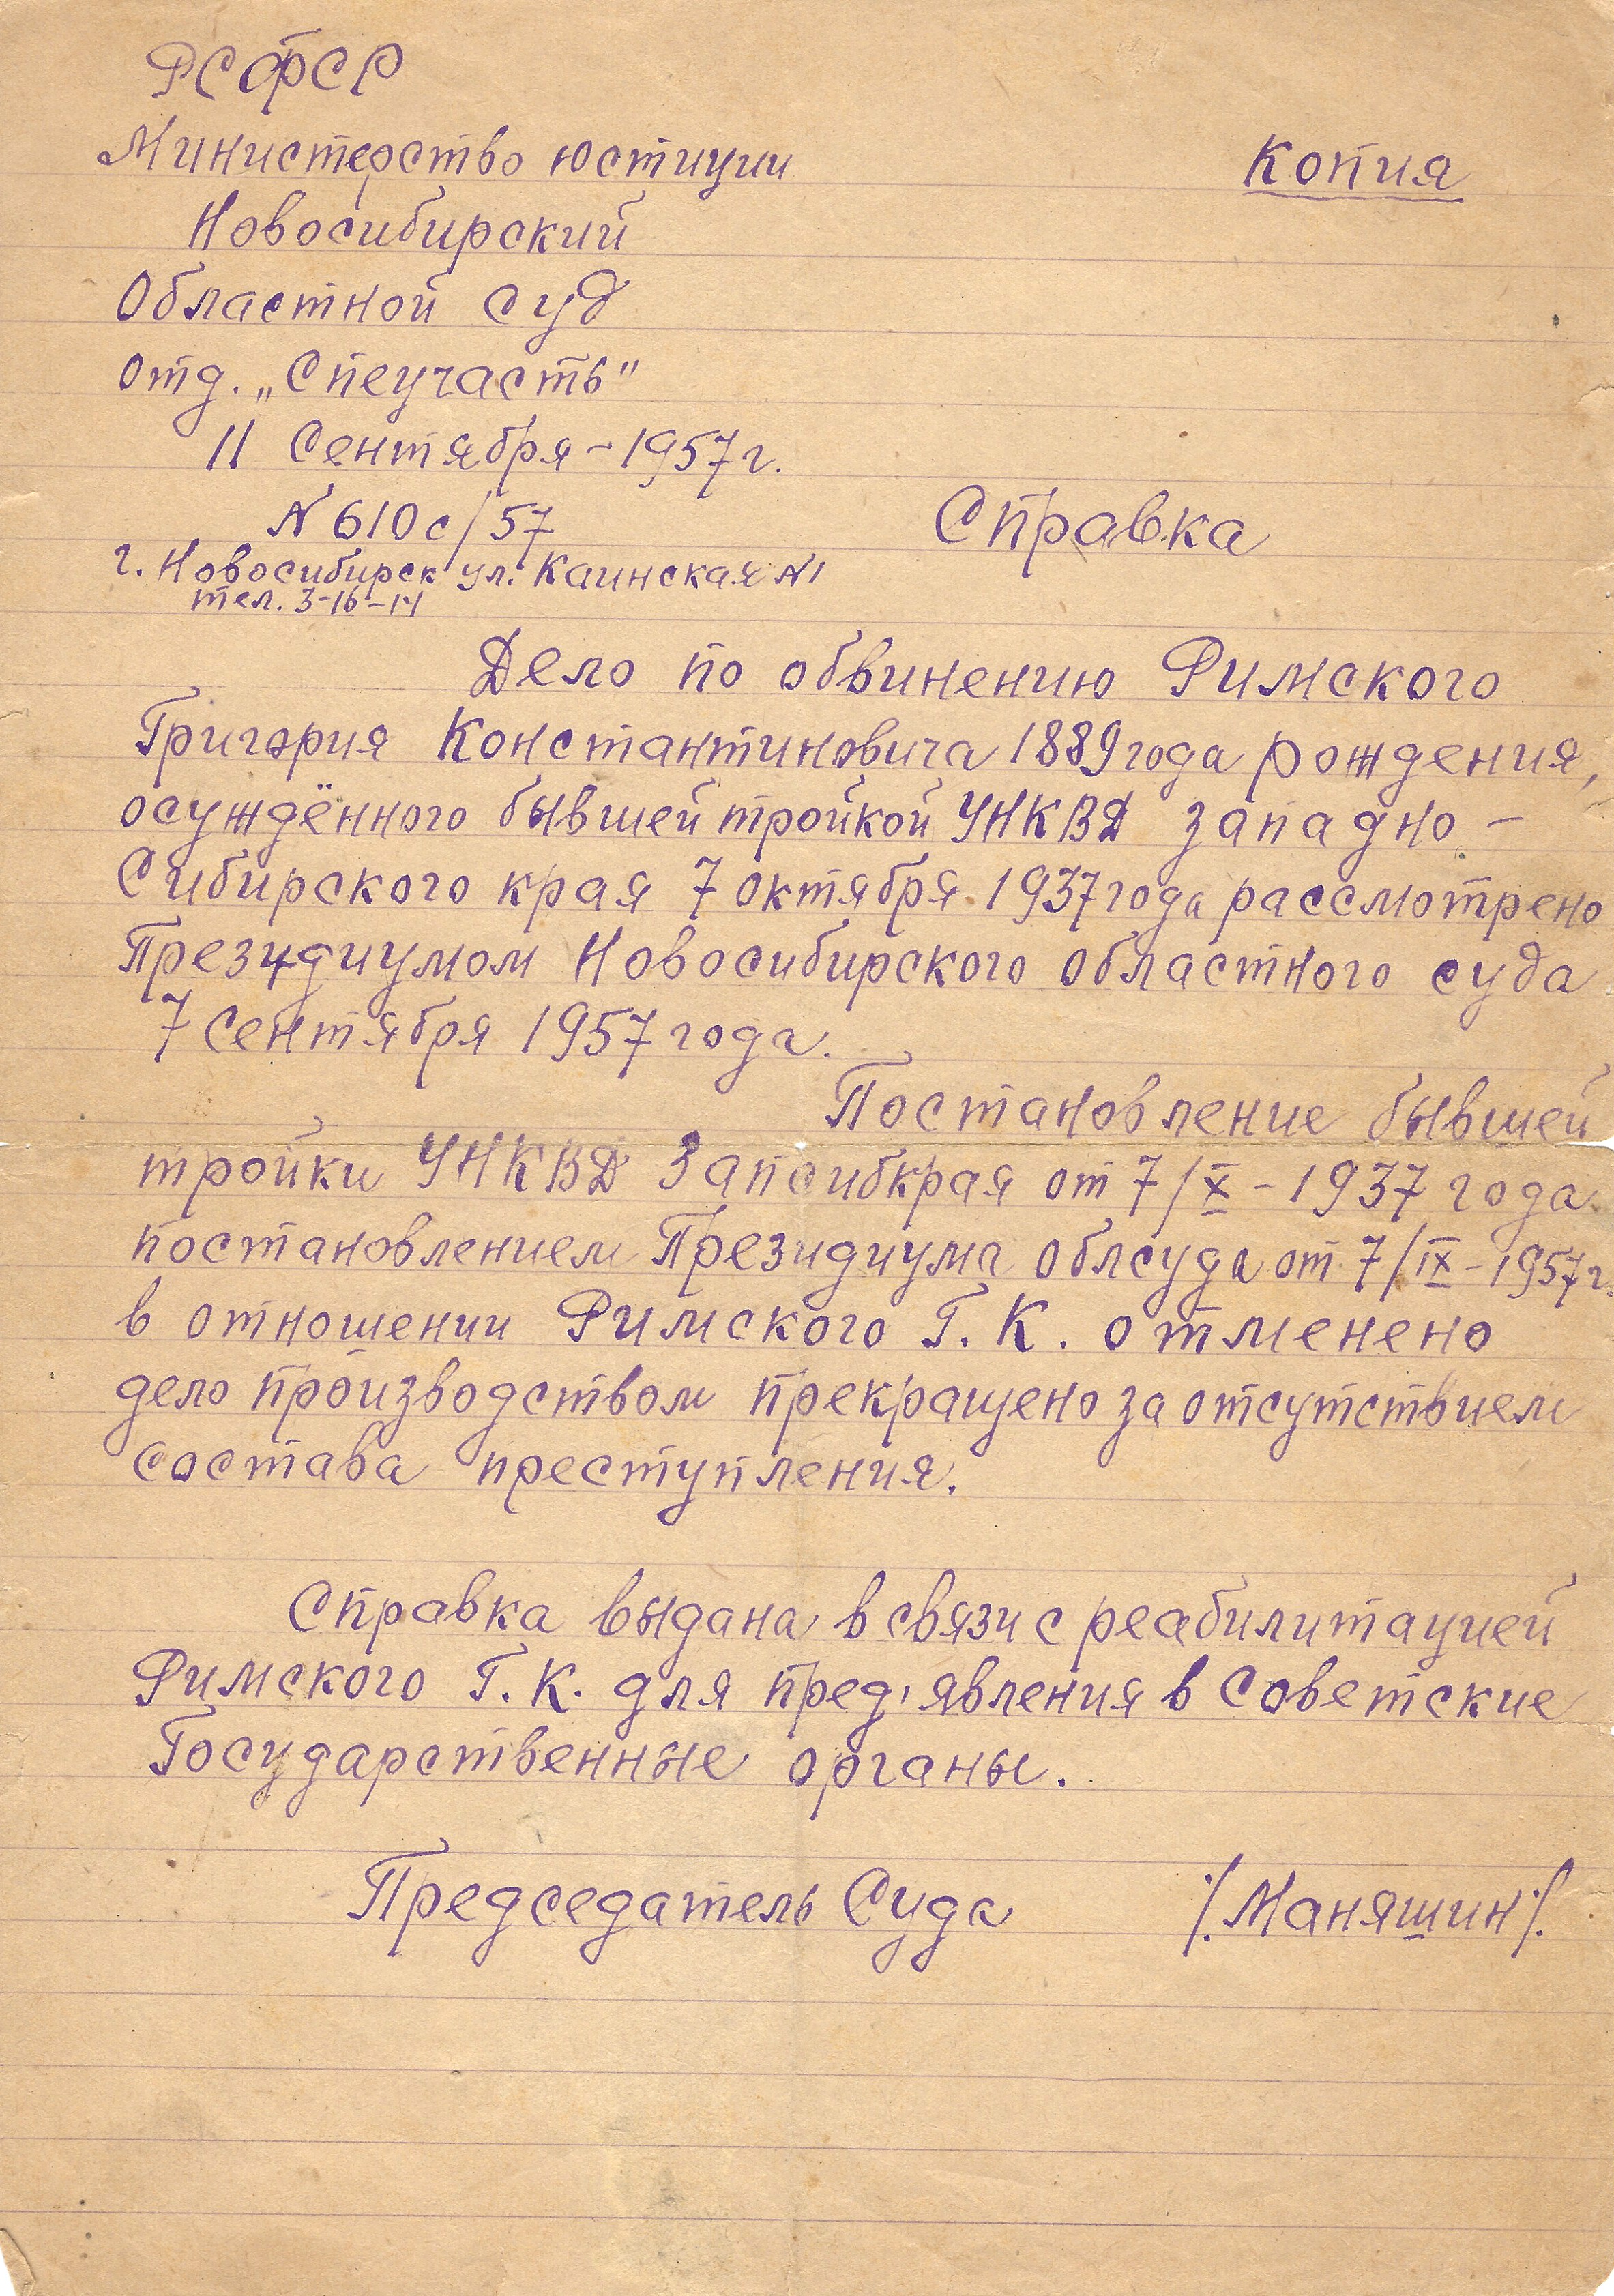 РСФСР
Министерство юстиции
Копия
Новосибирский
Областной суд
отд. „Спецчасть"
11 Сентября - 1957 г.
N 610 с/57
Справка
г. Новосибирск ул. Каинская N1
тел. 3-16-14
Дело по обвинению Римского
Григория Константиновича 1889 года рождения,
осуждённого бывшей тройкой УНКВД западно -
Сибирского края 7 октября 1937 года рассмотрено
Президиумом Новосибирского областного суда
7 сентября 1957 года.
Постановление бывшей
тройки УНКВД Запсибкрая от 7/X - 1937 года
постановлением Президиума облсуда от 7/IX - 1957 г.
в отношении Римского Г. К. отменено
дело производством прекращено за отсутствием
состава преступления.
Справка выдана в связи с реабилитацией
Римского Г. К. для пред'явления в Советские
Государственные органы.
Председатель Суда ./. Маняшин ./.